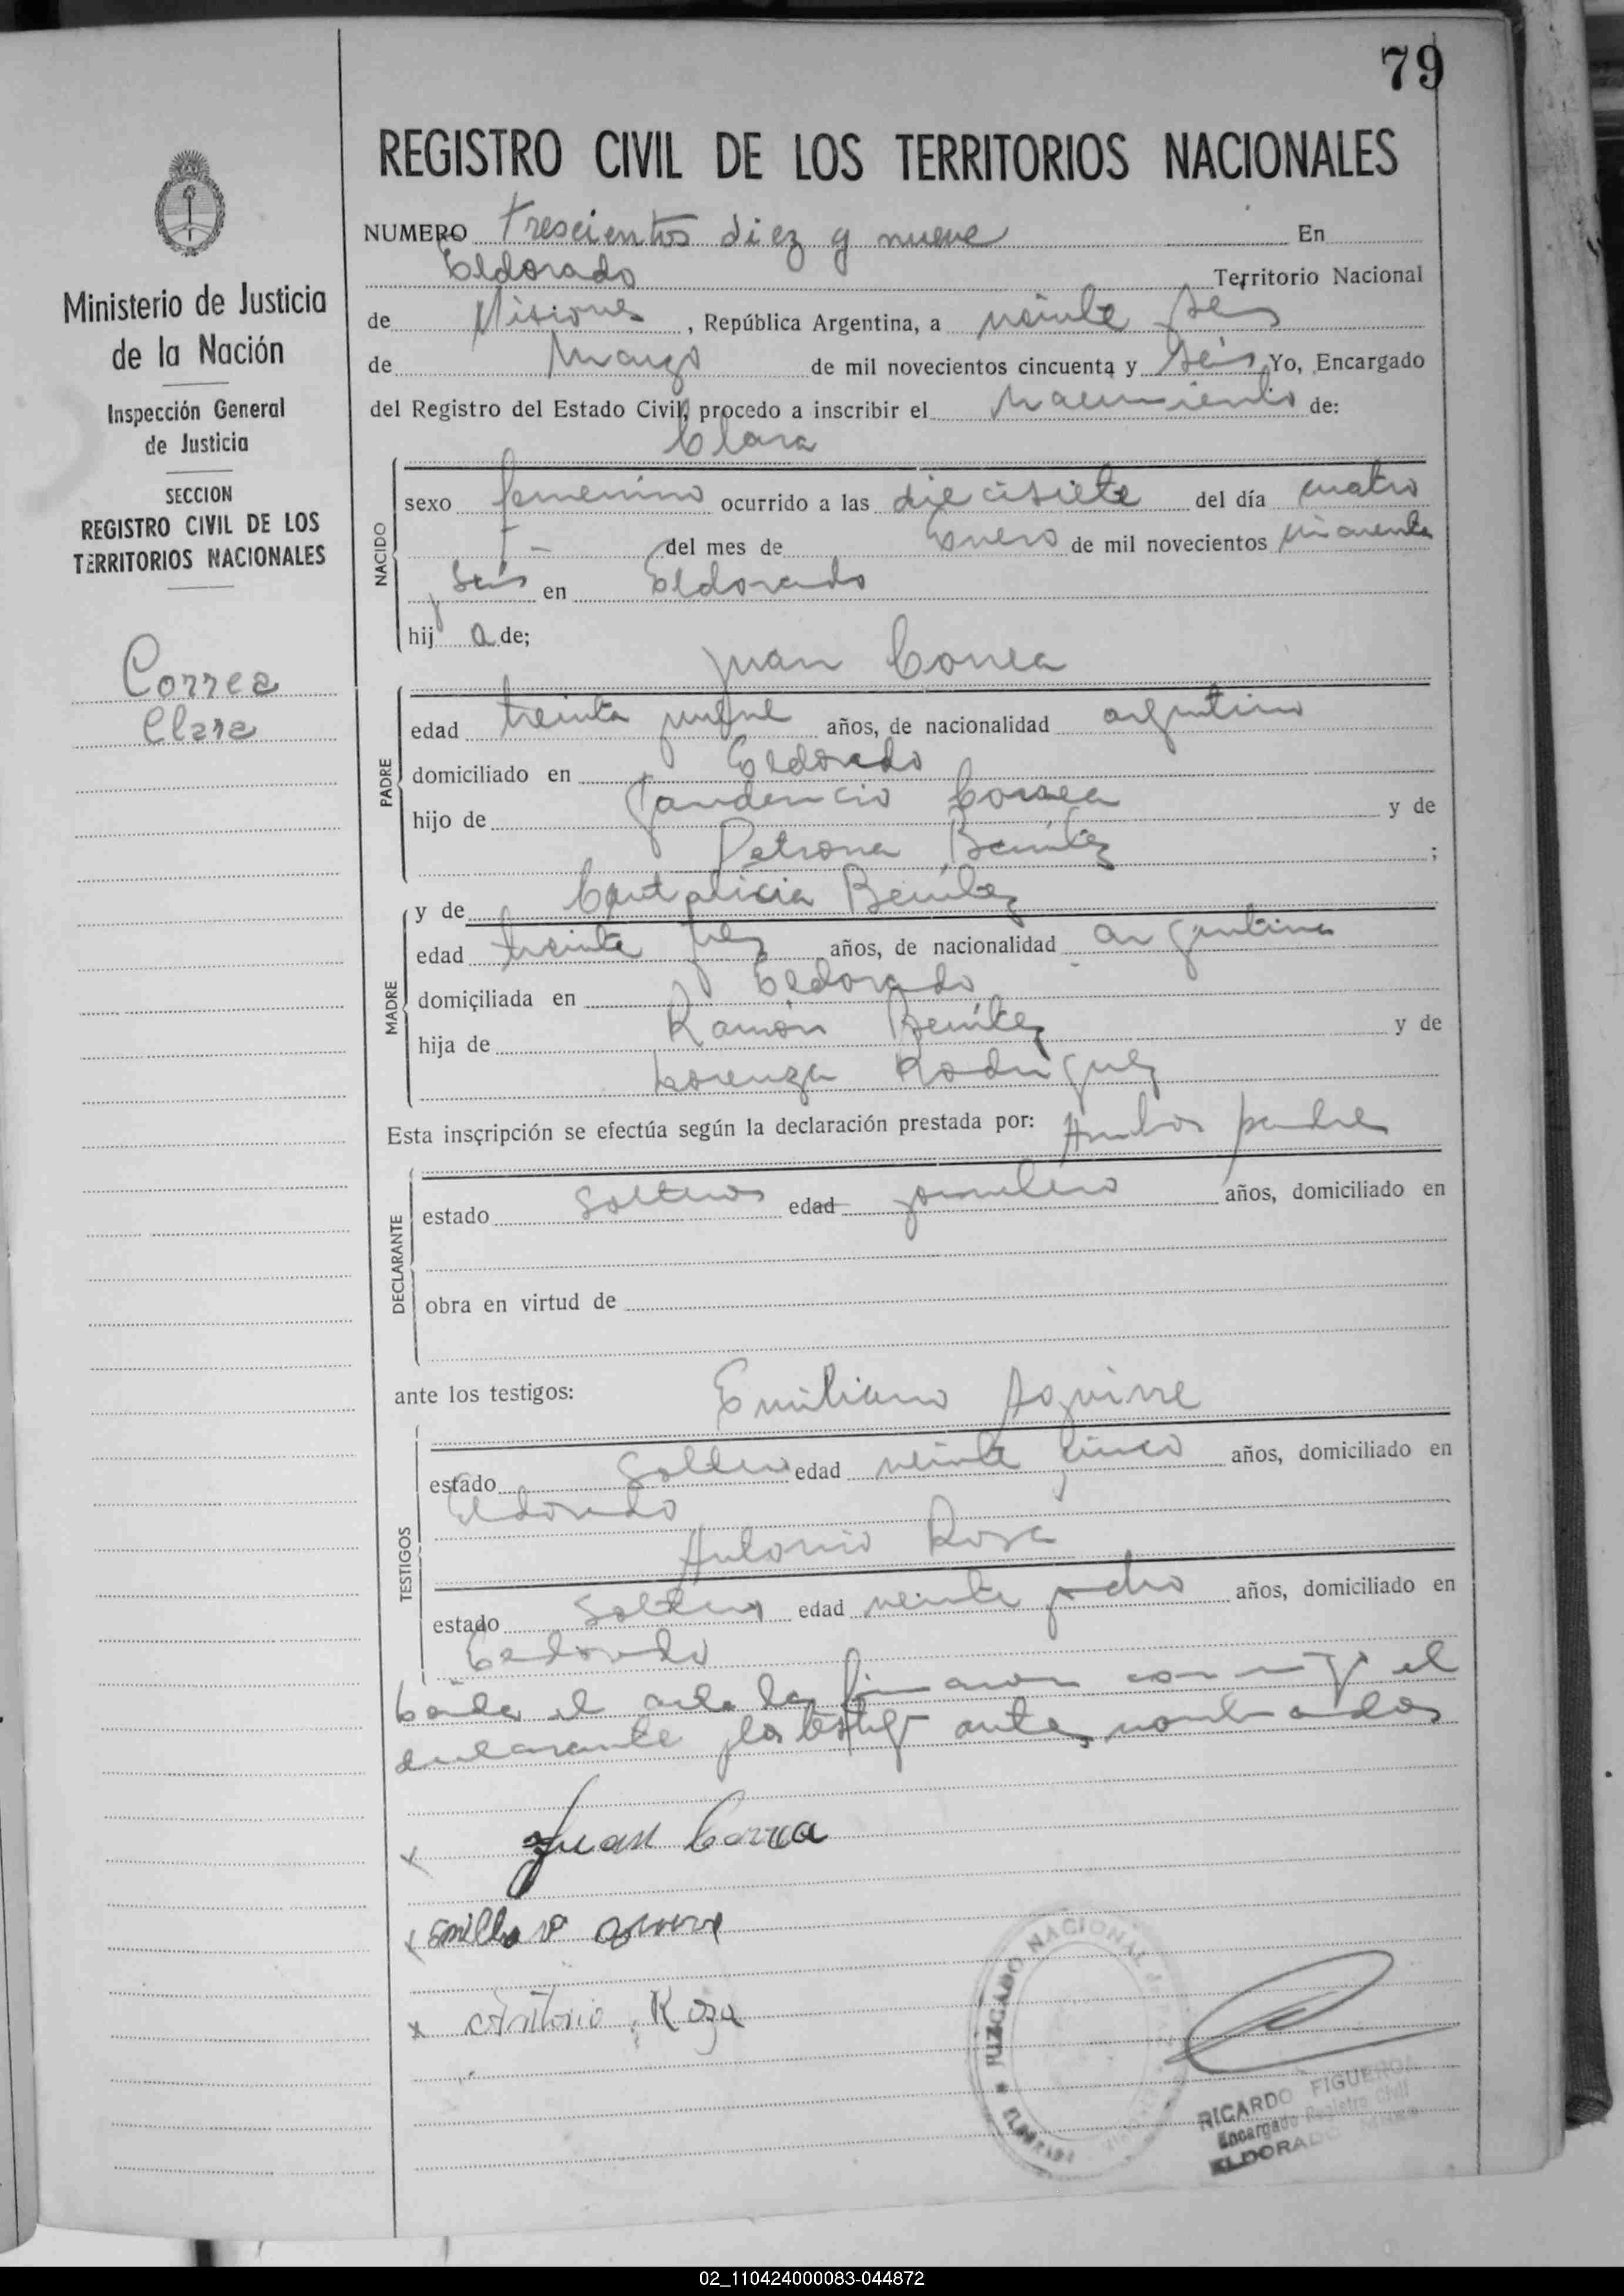 79
REGISTRO CIVIL DE LOS TERRITORIOS NACIONALES
Ministerio de Justicia
de la Nación
Inspección General
de Justicia
SECCION
REGISTRO CIVIL DE LOS
TERRITORIOS NACIONALES
Correa
Clara
NUMERO trescientos diez y nueve En
Eldorado Territorio Nacional
de Misiones, República Argentina, a veinte seis
de Marzo de mil novecientos cincuenta y seis Yo, Encargado
del Registro del Estado Civil, procedo a inscribir el nacimiento de:
Clara
NACIDO
sexo femenino ocurrido a las diecisiete del día cuatro
del mes de Enero de mil novecientos cincuenta
y seis en Eldorado
hij a de;
Juan Correa
PADRE
edad treinta y nueve años, de nacionalidad argentino
domiciliado en Eldorado
hijo de Gaudencio Correa y de
Petrona Benítez ;
MADRE
y de Cantalicia Benítez
edad treinta y tres años, de nacionalidad argentina
domiciliada en Eldorado
hija de Ramón Benítez y de
Lorenza Rodriguez
Esta inscripción se efectúa según la declaración prestada por: Ambos padres
DECLARANTE
estado solteros edad jornalero años, domiciliado en
obra en virtud de
ante los testigos: Emiliano Aguirre
TESTIGOS
estado soltero edad veinte y cinco años, domiciliado en
Eldorado
Antonio Rosa
estado soltero edad veinte y ocho años, domiciliado en
Eldorado
el acta la firmaron conmigo el
declarante y los testigos antes nombrados
x Juan Correa
x
x Antonio Roza
JUZGADO NACIONAL
ELDORADO
RICARDO FIGUEROA
Encargado Registro Civil
ELDORADO
02_110424000083-044872